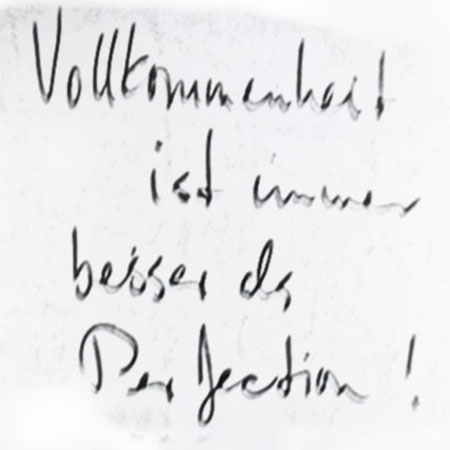 Vollkommenheit
ist immer
besser als
Perfection!